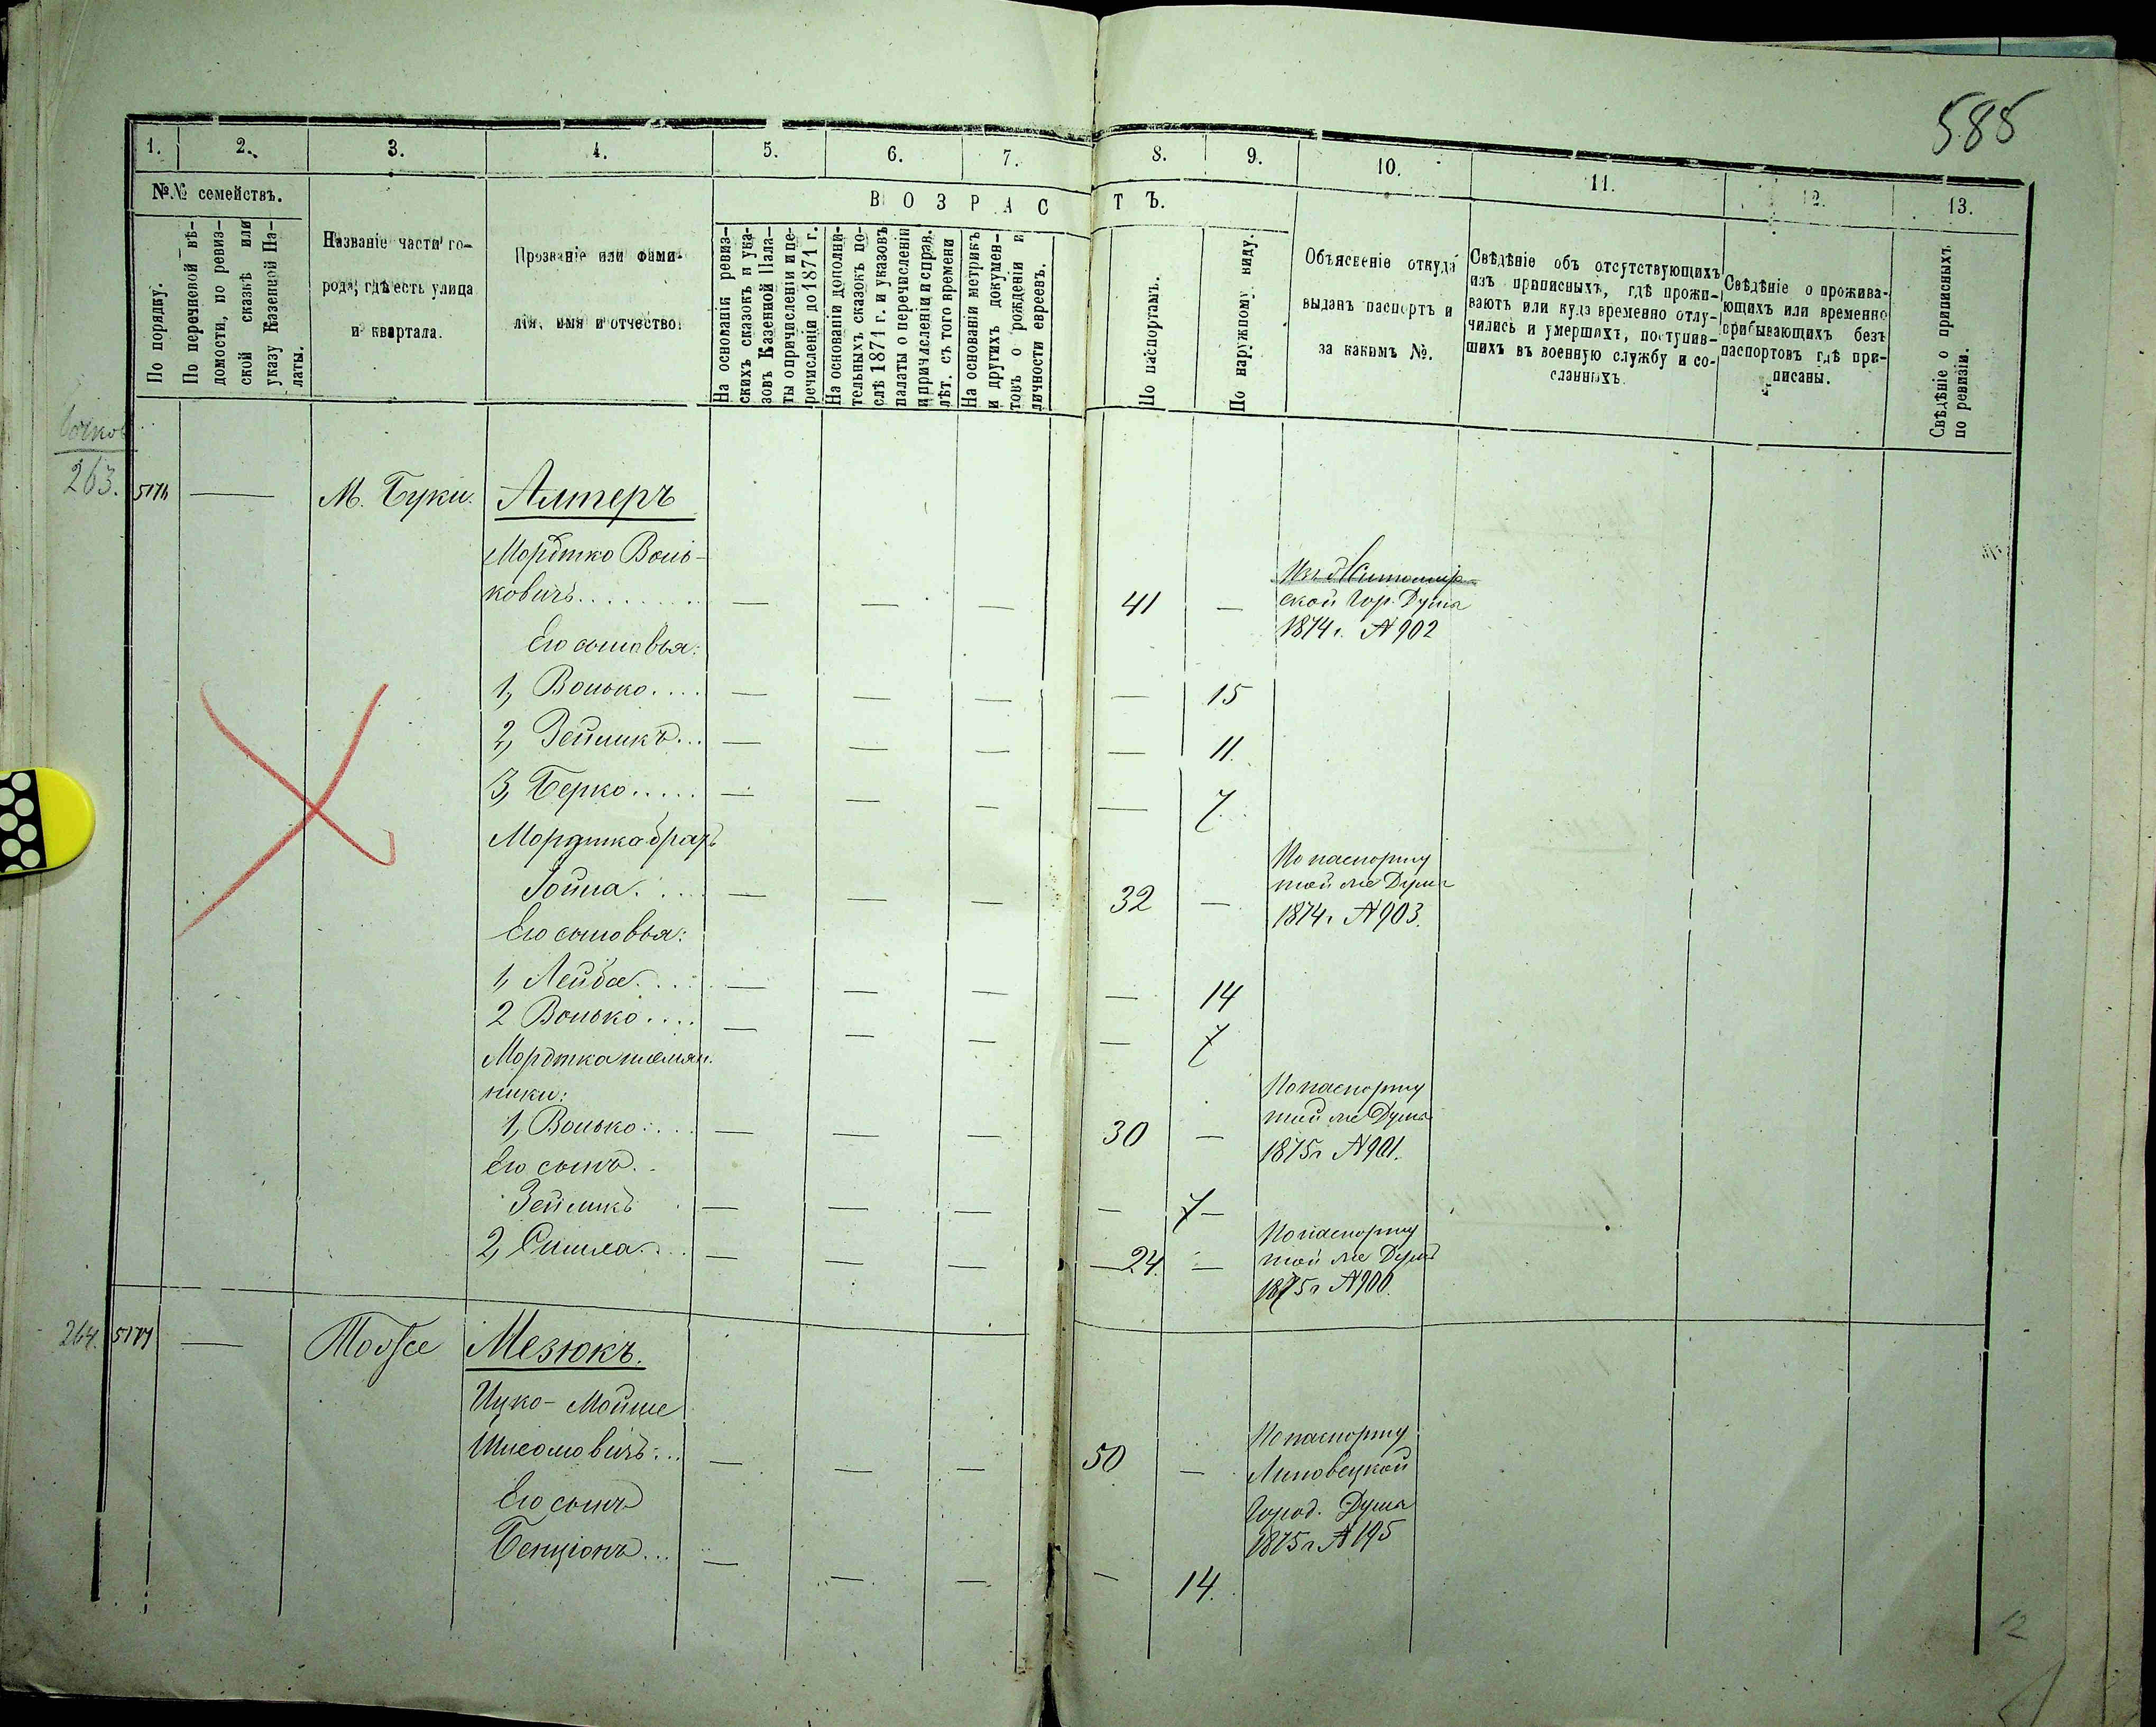 585
1. 2. 3. 4. 5. 6. 7. 8. 9. 10. 11. 12. 13.
№№ семействъ.
По порядку.
По перечневой вѣ-
домости, по ревиз-
ской сказкѣ или
указу Казенной Па-
латы.
Названіе части го-
рода, гдѣ есть улица
и квартала.
Прозваніе или фами-
лія, имя и отчество.
ВОЗРАСТЪ.
На основаніи ревиз-
скихъ сказокъ и ука-
зовъ Казенной Пала-
ты о причисленіи и пе-
речисленіи до 1871 г.
На основаніи дополни-
тельныхъ сказокъ по-
слѣ 1871 г. и указовъ
палаты о перечисленіи
и причисленіи и справ.
лѣт. съ того времени
На основаніи метрикъ
и другихъ докумен-
товъ о рожденіи и
личности евреевъ.
По паспортамъ.
По наружному виду.
Объясненіе откуда
выданъ паспортъ и
за какимъ №.
Свѣдѣніе объ отсутствующихъ
изъ приписныхъ, гдѣ прожи-
ваютъ или куда временно отлу-
чились и умершихъ, поступив-
шихъ въ военную службу и со-
сланныхъ.
Свѣдѣніе о прожива-
ющихъ или временно
прибывающихъ безъ
паспортовъ гдѣ при-
писаны.
Свѣдѣніе о приписныхъ
по ревизіи.
263. — М. Буки. Алтеръ
Мордтко Воль-
ковичъ — — — 41 — Изъ Житомір-
ской Гор. Думы
1874 г. № 902
Его сыновья:
1, Волько — — — — 15
2, Зейликъ — — — — 11
3, Берко — — — — 7
Мордтка братъ
Іойна — — — 32 — По паспорту
той же Думы
1874 г. № 903.
Его сыновья:
1, Лейба — — — — 14
2 Волько — — — — 7
Мордтка племян-
ники:
1, Волько — — — 30 — По паспорту
той же Думы
1875 г № 901.
Его сынъ
Зейликъ — — — — 7 —
2, Симха — — — — 24. — По паспорту
той же Думы
1875 г № 900.
264. 5177 — Тоже Мезюкъ.
Ицко-Мойше
Шлеомовичъ — — — 50 — По паспорту
Липовецкой
Город. Думы
1875 г № 195
Его сынъ
Бенціонъ — — — — 14.
12